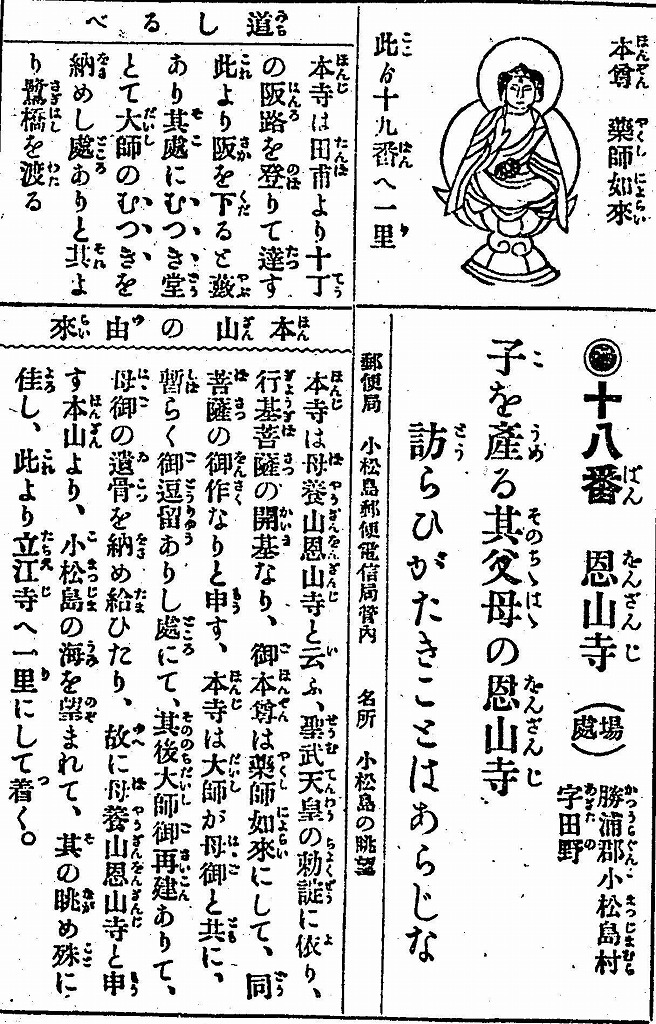 本尊　藥師如來
此ゟ十九番へ一里
十八番　恩山寺　（場處）　勝浦郡小松島村
字田野
子を產る其父母の恩山寺
訪らひがたきことはあらじな
郵便局　小松島郵便電信局管內　名所　小松島の眺望
道しるべ
本寺は田甫より十丁
の阪路を登りて達す
此より阪を下ると藪
あり其處にむつき堂
とて大師のむつきを
納めし處ありと其よ
り鷺橋を渡る
本山の由來
本寺は母養山恩山寺と云ふ、聖武天皇の勅諚に依り、
行基菩薩の開基なり、御本尊は藥師如來にして、同
菩薩の御作なりと申す、本寺は大師が母御と共に、
暫らく御逗留ありし處にて、其後大師御再建ありて、
母御の遺骨を納め給ひたり、故に母養山恩山寺と申
す本山より、小松島の海を望まれて、其の眺め殊に
佳し、此より立江寺へ一里にして着く。